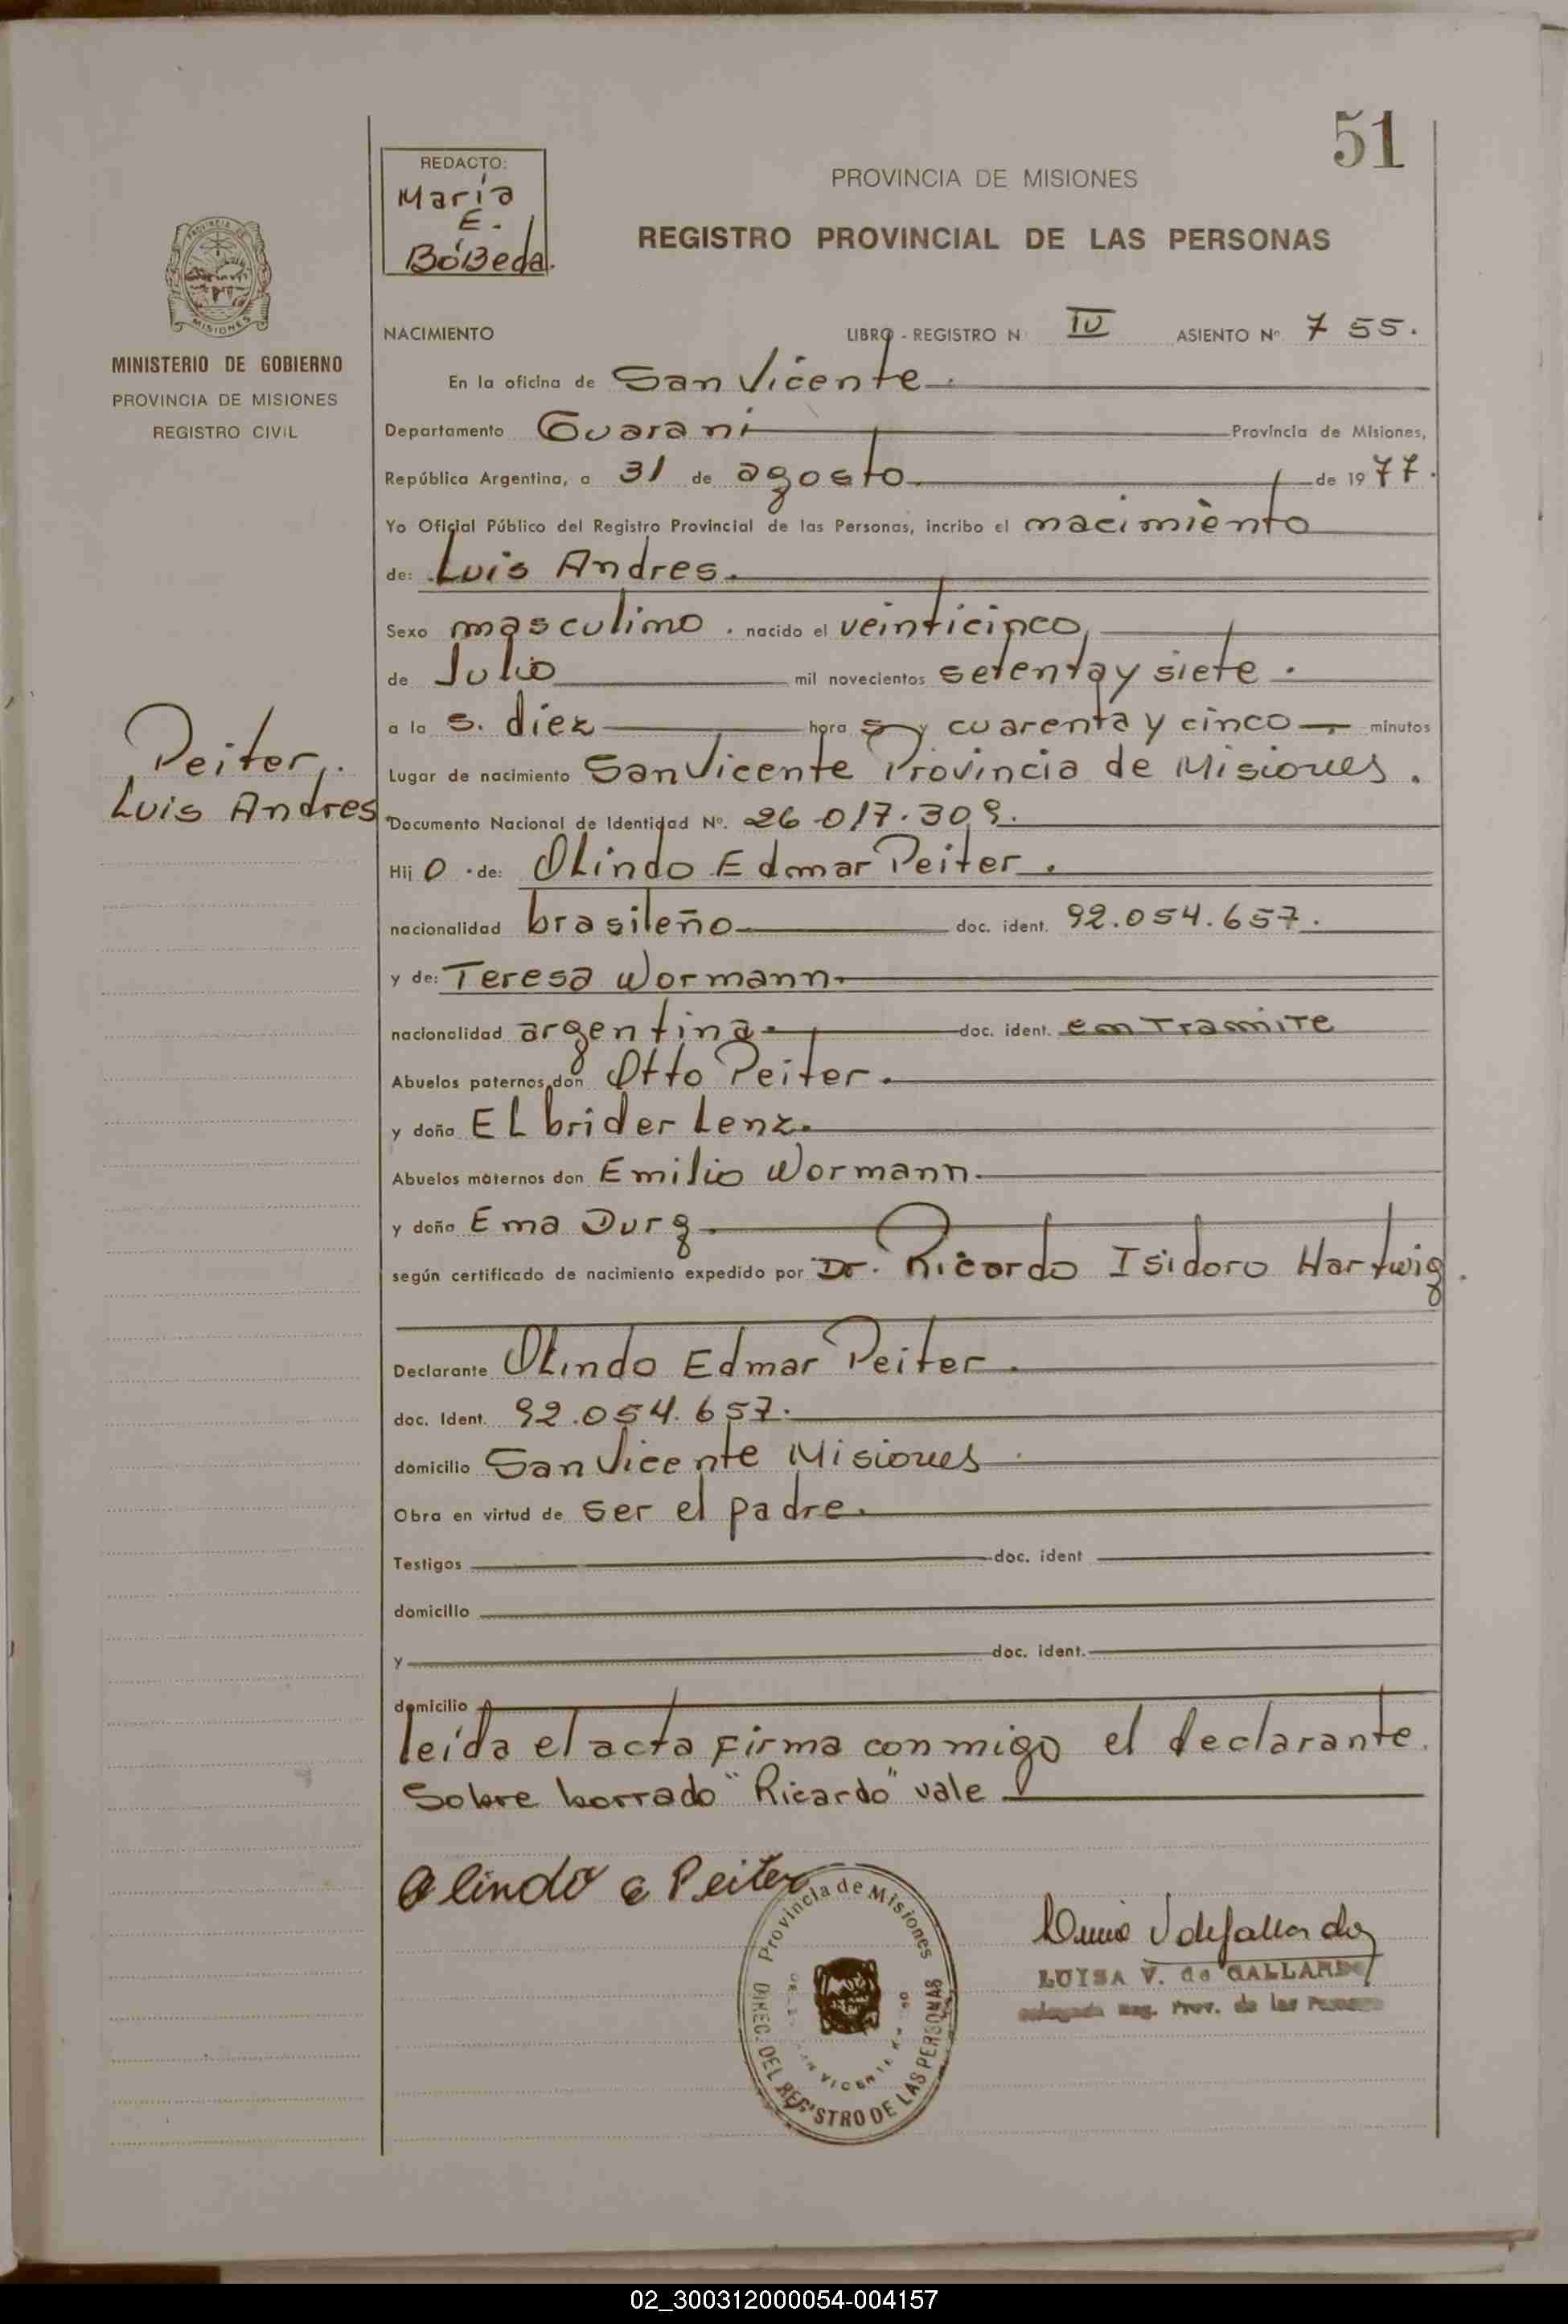 51
REDACTO:
María
E.
BóBeda.
PROVINCIA DE MISIONES
REGISTRO PROVINCIAL DE LAS PERSONAS
MISIONES
MINISTERIO DE GOBIERNO
PROVINCIA DE MISIONES
REGISTRO CIVIL
NACIMIENTO LIBRO - REGISTRO N IV ASIENTO Nº 755.
En la oficina de San Vicente.
Departamento Guarani Provincia de Misiones,
República Argentina, a 31 de agosto de 1977.
Yo Oficial Público del Registro Provincial de las Personas, incribo el nacimiento
de: Luis Andres.
Sexo masculino. nacido el veinticinco,
de Julio mil novecientos setenta y siete.
a la s. diez hora s y cuarenta y cinco minutos
Peiter,.
Luis Andres
Lugar de nacimiento San Vicente Provincia de Misiones.
Documento Nacional de Identidad Nº. 26.017.309.
Hij o . de: Olindo Edmar Peiter.
nacionalidad brasileño doc. ident. 92.054.657.
y de: Teresa Wormann.
nacionalidad argentina. doc. ident. en Tramite
Abuelos paternos don Otto Peiter.
y doña ELbrider Lenz.
Abuelos maternos don Emilio Wormann.
y doña Ema Durg.
según certificado de nacimiento expedido por Dr. Ricardo Isidoro Hartwig.
Declarante Olindo Edmar Peiter.
doc. Ident. 92.054.657.
domicilio San Vicente Misiones
Obra en virtud de ser el padre.
Testigos doc. ident
domicilio
y doc. ident.
domicilio
leída el acta firma conmigo el declarante.
Sobre borrado "Ricardo" vale
Olindo e Peiter
Provincia de Misiones
DIREC. DEL REGISTRO DE LAS PERSONAS
LUISA V. de GALLARDO
Reg. Prov. de las Personas
02_300312000054-004157